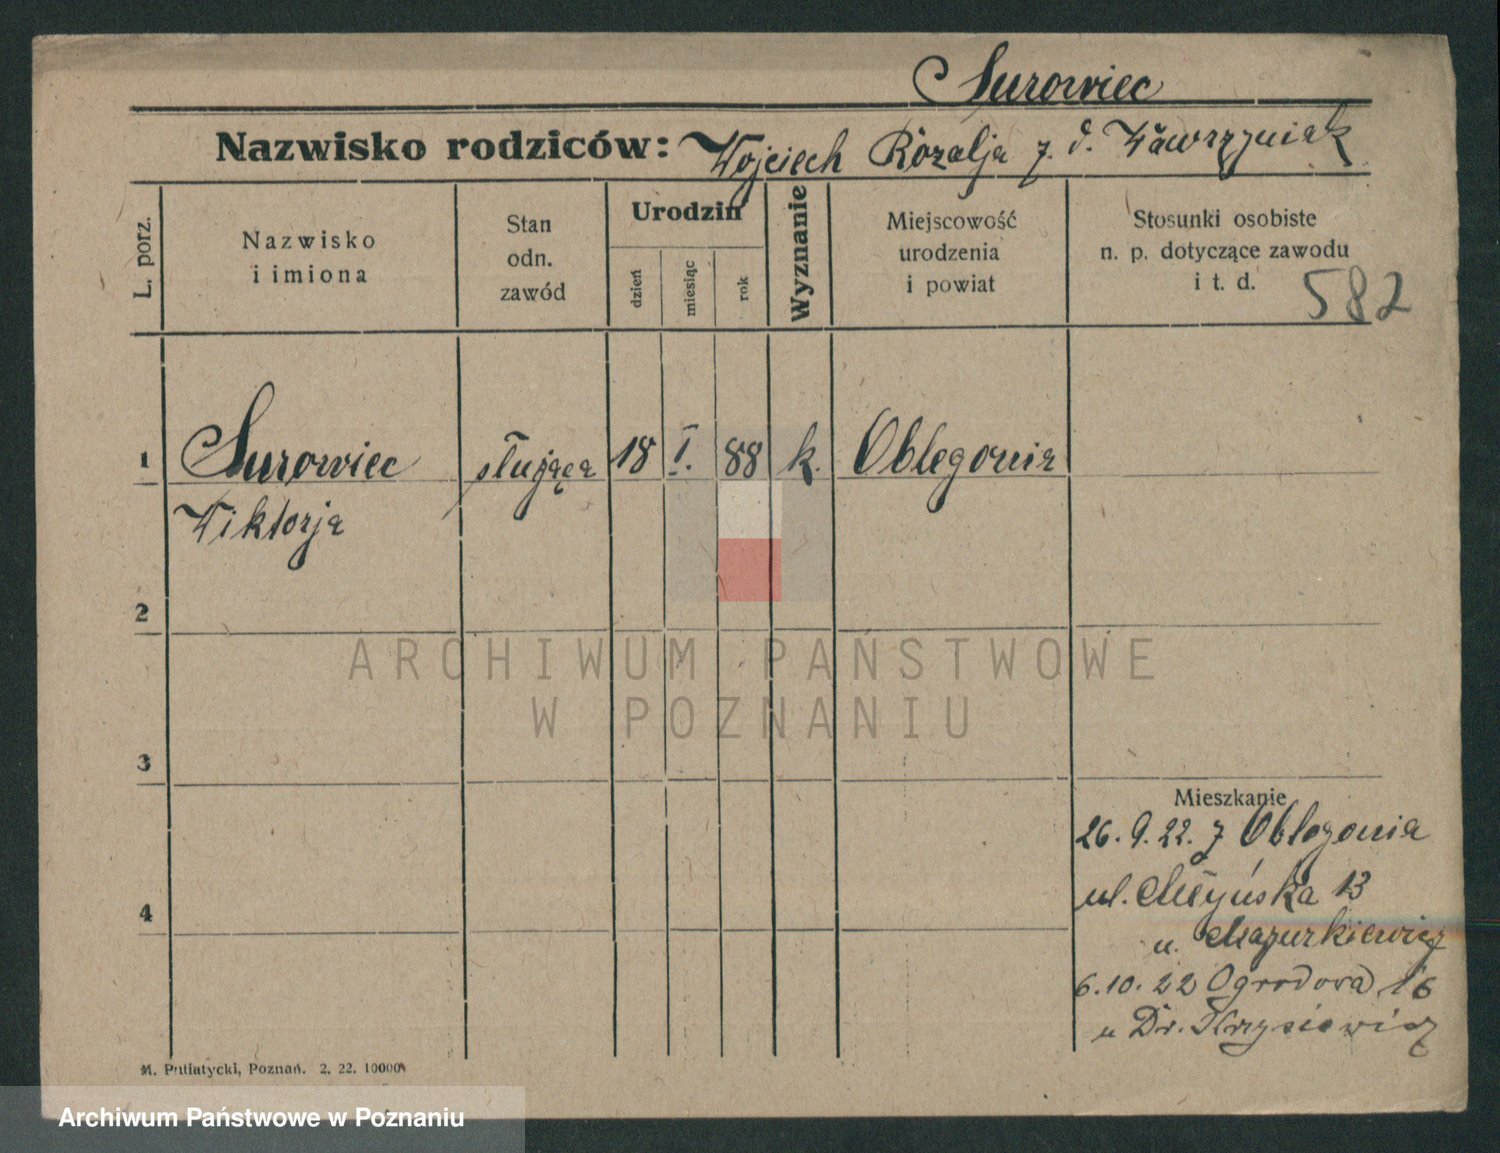 Surowiec
Nazwisko rodziców: Wojciech Rozalja z. d. Wawrzyniak
L. porz.
Nazwisko i imiona
Stan odn. zawód
Urodzin
dzień
miesiąc
rok
Wyznanie
Miejscowość urodzenia i powiat
Stosunki osobiste n. p. dotyczące zawodu i t. d.
582
1 Surowiec służąca 18 I. 88 k. Oblegonia
Wiktorja
2
3
4
Mieszkanie
26. 9. 22. z Oblegonia
ul. Młyńska 13
u. Mazurkiewicz
6. 10. 22 Ogrodowa 16
u Dr.
M. Putiatycki, Poznań. 2. 22. 10000
ARCHIWUM PAŃSTWOWE
W POZNANIU
Archiwum Państwowe w Poznaniu